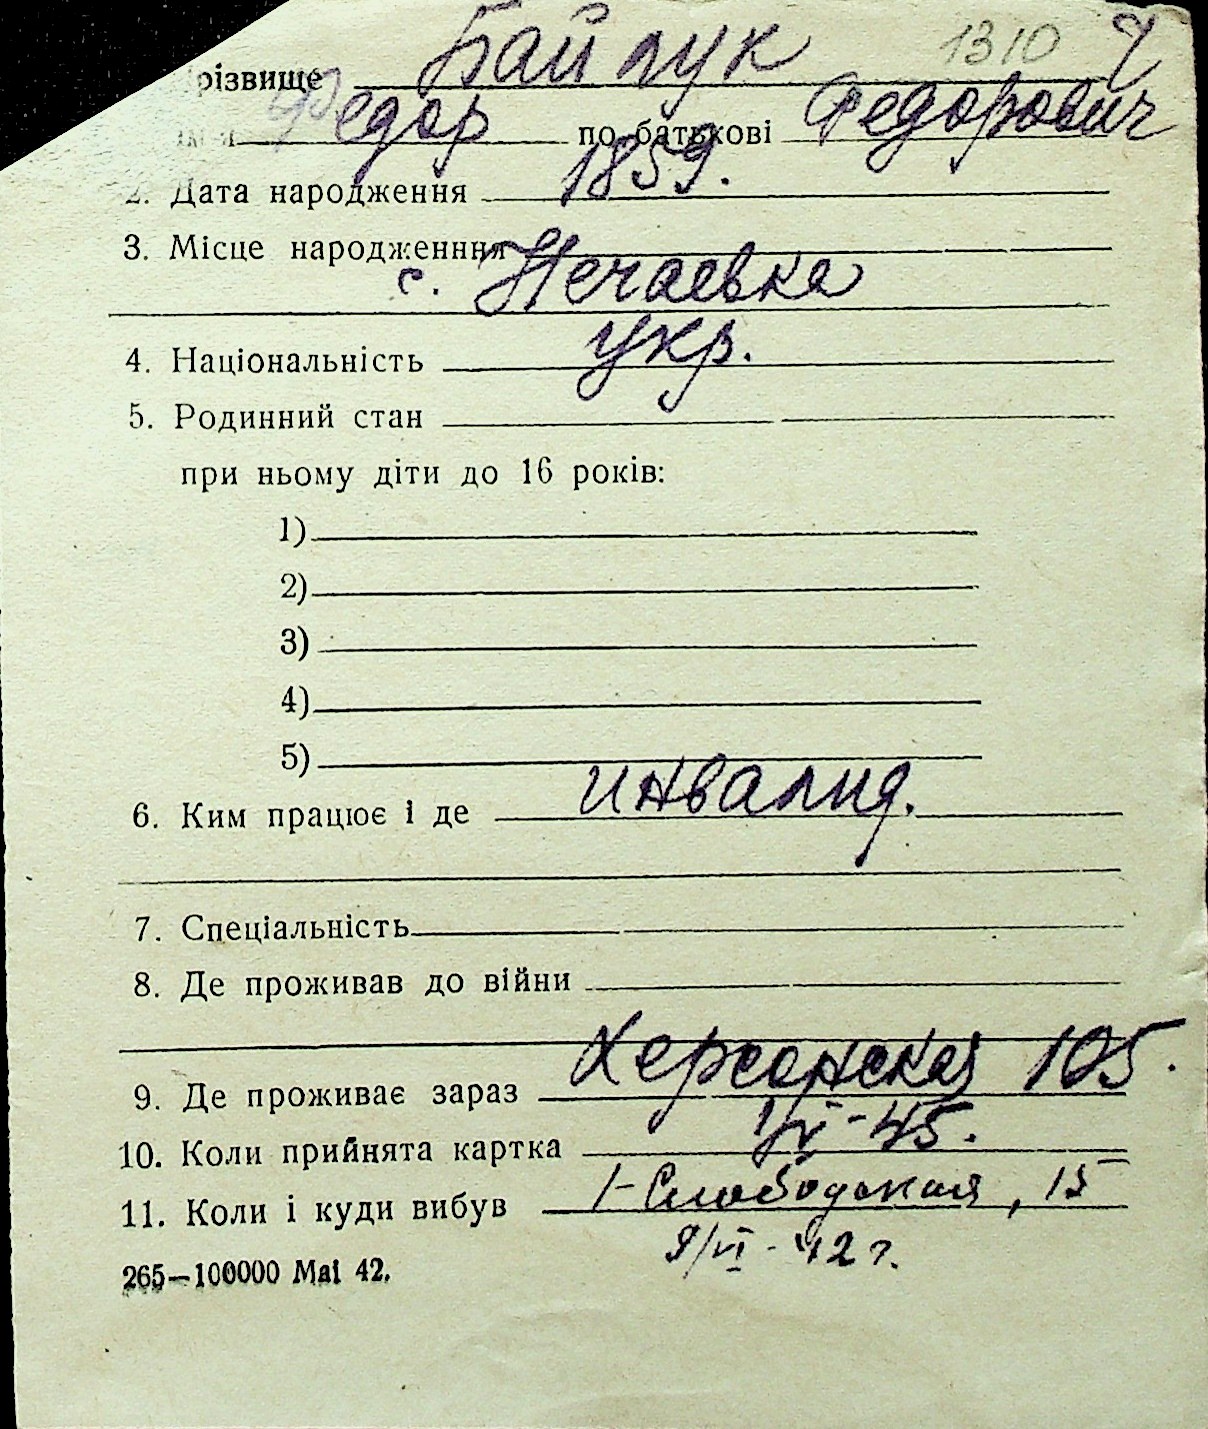 різвище Байлук 1310
Федор по батькові Федорович
2. Дата народження 1859.
3. Місце народженння
с. Нечаевка
4. Національність укр.
5. Родинний стан
при ньому діти до 16 років:
1)
2)
3)
4)
5)
6. Ким працює і де инвалид.
7. Спеціальність
8. Де проживав до війни
9. Де проживає зараз Херсонская 105.
10. Коли прийнята картка
11. Коли і куди вибув 1-Слободская, 15
9/VI-42 г.
265—100000 Mai 42.